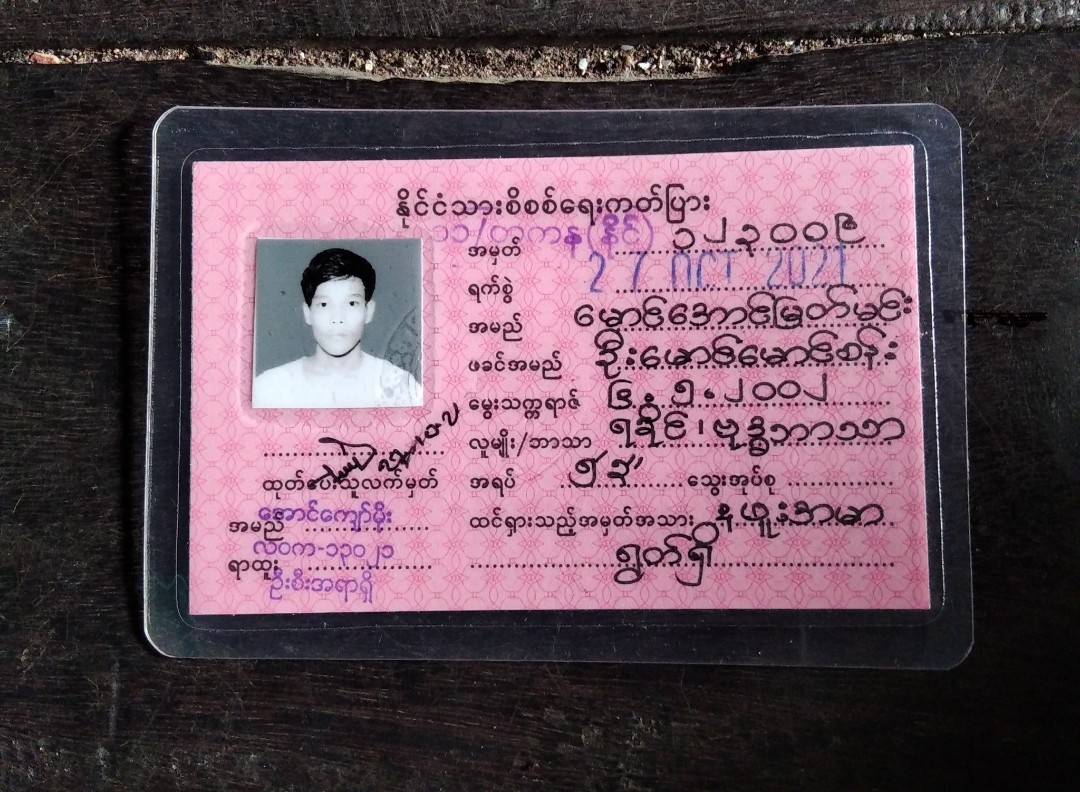 နိုင်ငံသားစိစစ်ရေးကတ်ပြား
အမှတ် ၁၁/တကန(နိုင်) ၁၂၃၀၀၉
ရက်စွဲ 27 OCT 2021
အမည် မောင်အောင်မြတ်မင်း
ဖခင်အမည် ဦးမောင်မောင်စန်း
မွေးသက္ကရာဇ် ၆.၅.၂၀၀၂
လူမျိုး/ဘာသာ ရခိုင်၊ ဗုဒ္ဓဘာသာ
အရပ် ၅' ၃" သွေးအုပ်စု
ထင်ရှားသည့်အမှတ်အသား နဖူးဘယာ
ရွတ်ရှိ
ထုတ်ပေးသူလက်မှတ်
အမည် အောင်ကျော်မိုး
လဝက-၁၃၀၂၁
ရာထူး ဦးစီးအရာရှိ